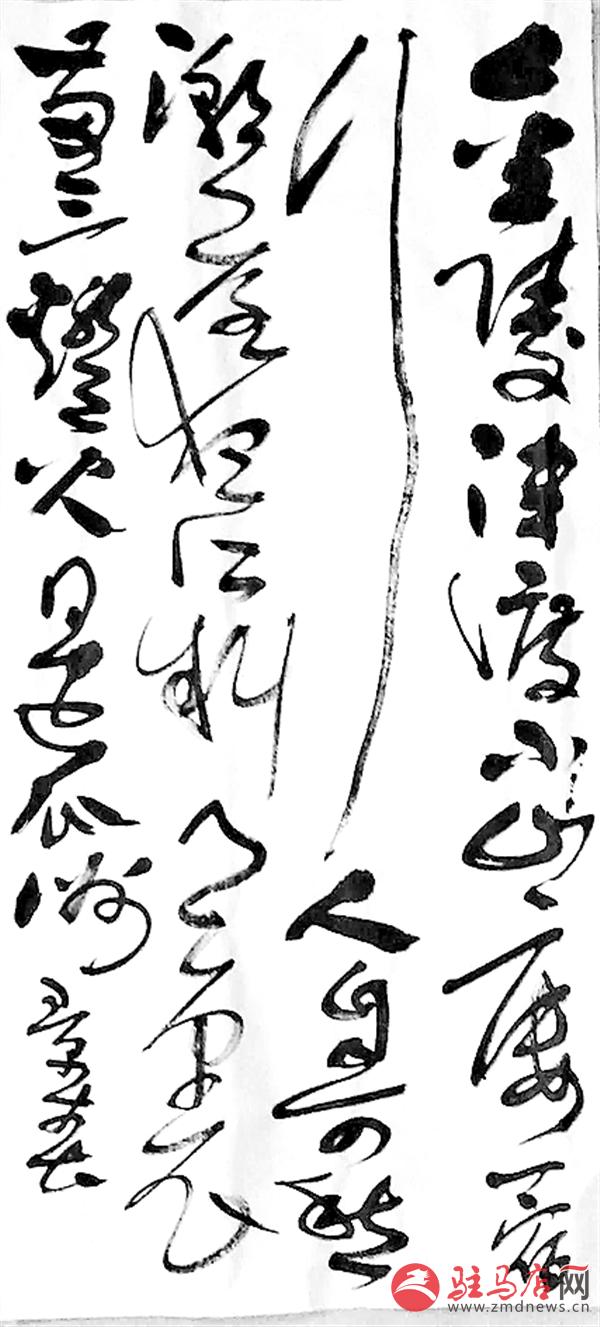 金陵津渡小山廔一宿
行人自可愁
潮落夜江斜月裏
兩三燈火是瓜洲
驻马店网
www.zmdnews.cn